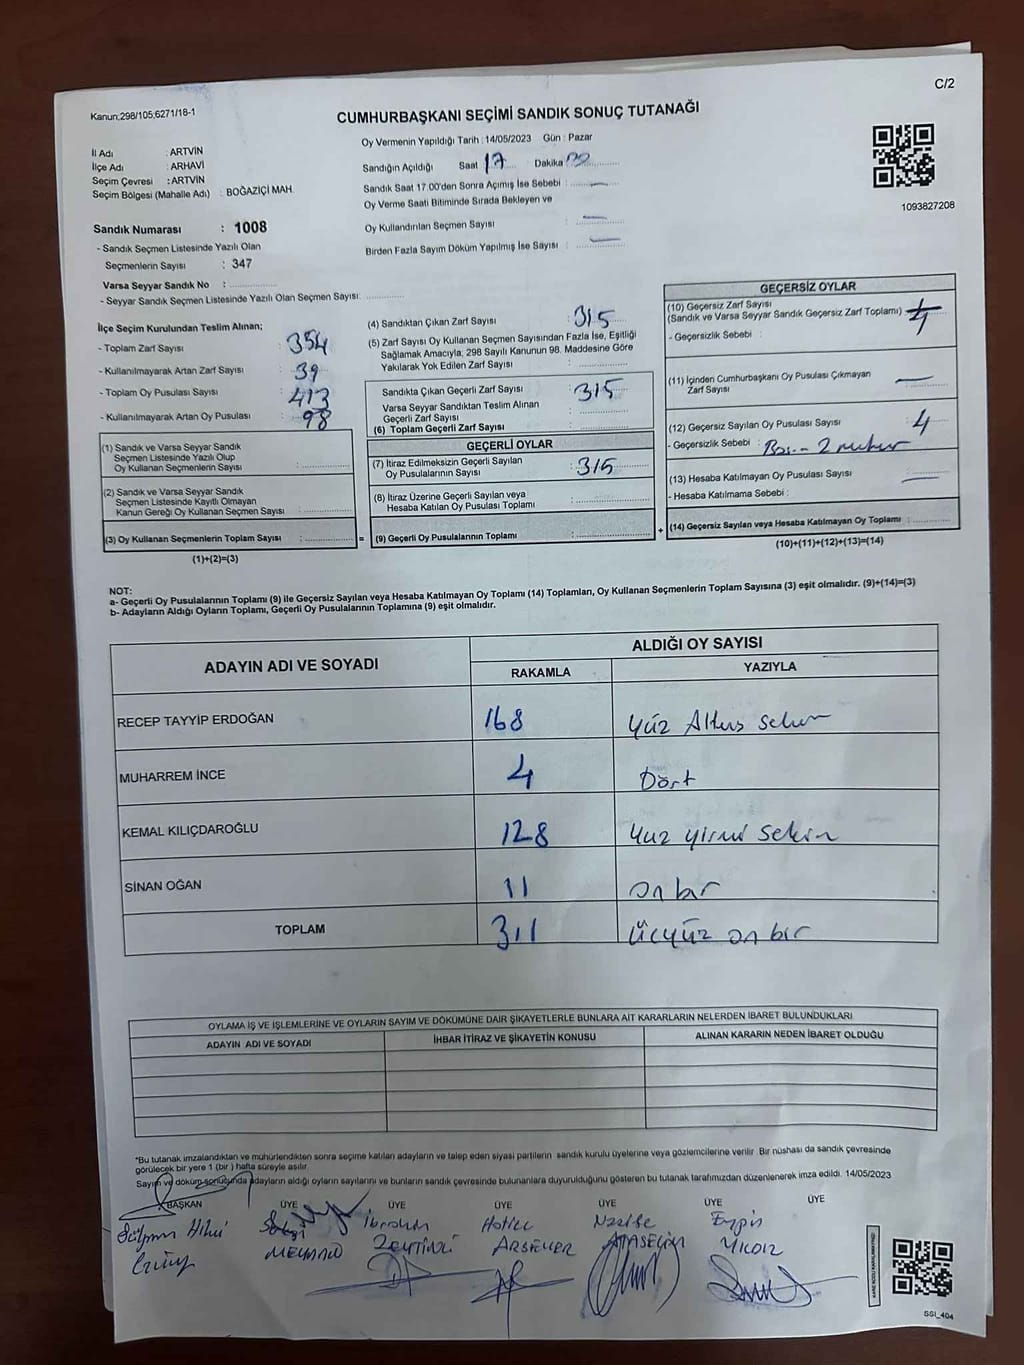 C/2
Kanun;298/105;6271/18-1
CUMHURBAŞKANI SEÇİMİ SANDIK SONUÇ TUTANAĞI
Oy Vermenin Yapıldığı Tarih : 14/05/2023 Gün : Pazar
İl Adı : ARTVİN
İlçe Adı : ARHAVİ
Seçim Çevresi : ARTVİN
Seçim Bölgesi (Mahalle Adı) : BOĞAZİÇİ MAH.
Sandığın Açıldığı Saat 17 Dakika 00
Sandık Saat 17.00'den Sonra Açımış İse Sebebi :
Oy Verme Saati Bitiminde Sırada Bekleyen ve
Oy Kullandırılan Seçmen Sayısı :
Birden Fazla Sayım Döküm Yapılmış İse Sayısı :
1093827208
Sandık Numarası : 1008
- Sandık Seçmen Listesinde Yazılı Olan
Seçmenlerin Sayısı : 347
Varsa Seyyar Sandık No :
- Seyyar Sandık Seçmen Listesinde Yazılı Olan Seçmen Sayısı:
İlçe Seçim Kurulundan Teslim Alınan;
- Toplam Zarf Sayısı : 354
- Kullanılmayarak Artan Zarf Sayısı : 39
- Toplam Oy Pusulası Sayısı : 413
- Kullanılmayarak Artan Oy Pusulası : 98
(1) Sandık ve Varsa Seyyar Sandık
Seçmen Listesinde Yazılı Olup
Oy Kullanan Seçmenlerin Sayısı :
(2) Sandık ve Varsa Seyyar Sandık
Seçmen Listesinde Kayıtlı Olmayan
Kanun Gereği Oy Kullanan Seçmen Sayısı :
(3) Oy Kullanan Seçmenlerin Toplam Sayısı : =
(1)+(2)=(3)
(4) Sandıktan Çıkan Zarf Sayısı : 315
(5) Zarf Sayısı Oy Kullanan Seçmen Sayısından Fazla İse, Eşitliği
Sağlamak Amacıyla; 298 Sayılı Kanunun 98. Maddesine Göre
Yakılarak Yok Edilen Zarf Sayısı :
Sandıkta Çıkan Geçerli Zarf Sayısı : 315
Varsa Seyyar Sandıktan Teslim Alınan
Geçerli Zarf Sayısı :
(6) Toplam Geçerli Zarf Sayısı :
GEÇERLİ OYLAR
(7) İtiraz Edilmeksizin Geçerli Sayılan
Oy Pusulalarının Sayısı : 315
(8) İtiraz Üzerine Geçerli Sayılan veya
Hesaba Katılan Oy Pusulası Toplamı :
(9) Geçerli Oy Pusulalarının Toplamı : +
GEÇERSİZ OYLAR
(10) Geçersiz Zarf Sayısı
(Sandık ve Varsa Seyyar Sandık Geçersiz Zarf Toplamı) : 4
- Geçersizlik Sebebi :
(11) İçinden Cumhurbaşkanı Oy Pusulası Çıkmayan
Zarf Sayısı :
(12) Geçersiz Sayılan Oy Pusulası Sayısı : 4
- Geçersizlik Sebebi : 2 mühür
(13) Hesaba Katılmayan Oy Pusulası Sayısı :
- Hesaba Katılmama Sebebi :
(14) Geçersiz Sayılan veya Hesaba Katılmayan Oy Toplamı :
(10)+(11)+(12)+(13)=(14)
NOT:
a- Geçerli Oy Pusulalarının Toplamı (9) ile Geçersiz Sayılan veya Hesaba Katılmayan Oy Toplamı (14) Toplamları, Oy Kullanan Seçmenlerin Toplam Sayısına (3) eşit olmalıdır. (9)+(14)=(3)
b- Adayların Aldığı Oyların Toplamı, Geçerli Oy Pusulalarının Toplamına (9) eşit olmalıdır.
ADAYIN ADI VE SOYADI
ALDIĞI OY SAYISI
RAKAMLA YAZIYLA
RECEP TAYYİP ERDOĞAN 168 Yüz Altmış Sekiz
MUHARREM İNCE 4 Dört
KEMAL KILIÇDAROĞLU 128 Yuz yirmi Sekiz
SİNAN OĞAN 11 on bir
TOPLAM 311 Üçyüz on bir
OYLAMA İŞ VE İŞLEMLERİNE VE OYLARIN SAYIM VE DÖKÜMÜNE DAİR ŞİKAYETLERLE BUNLARA AİT KARARLARIN NELERDEN İBARET BULUNDUKLARI
ADAYIN ADI VE SOYADI İHBAR İTİRAZ VE ŞİKAYETİN KONUSU ALINAN KARARIN NEDEN İBARET OLDUĞU
*Bu tutanak imzalandıktan ve mühürlendikten sonra seçime katılan adayların ve talep eden siyasi partilerin sandık kurulu üyelerine veya gözlemcilerine verilir. Bir nüshası da sandık çevresinde
görülecek bir yere 1 (bir ) hafta süreyle asılır.
Sayım ve döküm sonucunda adayların aldığı oyların sayılarını ve bunların sandık çevresinde bulunanlara duyurulduğunu gösteren bu tutanak tarafımızdan düzenlenerek imza edildi. 14/05/2023
BAŞKAN ÜYE ÜYE ÜYE ÜYE ÜYE ÜYE
İbrahim Hatice Nazife Engin
YILDIZ
SSI_404